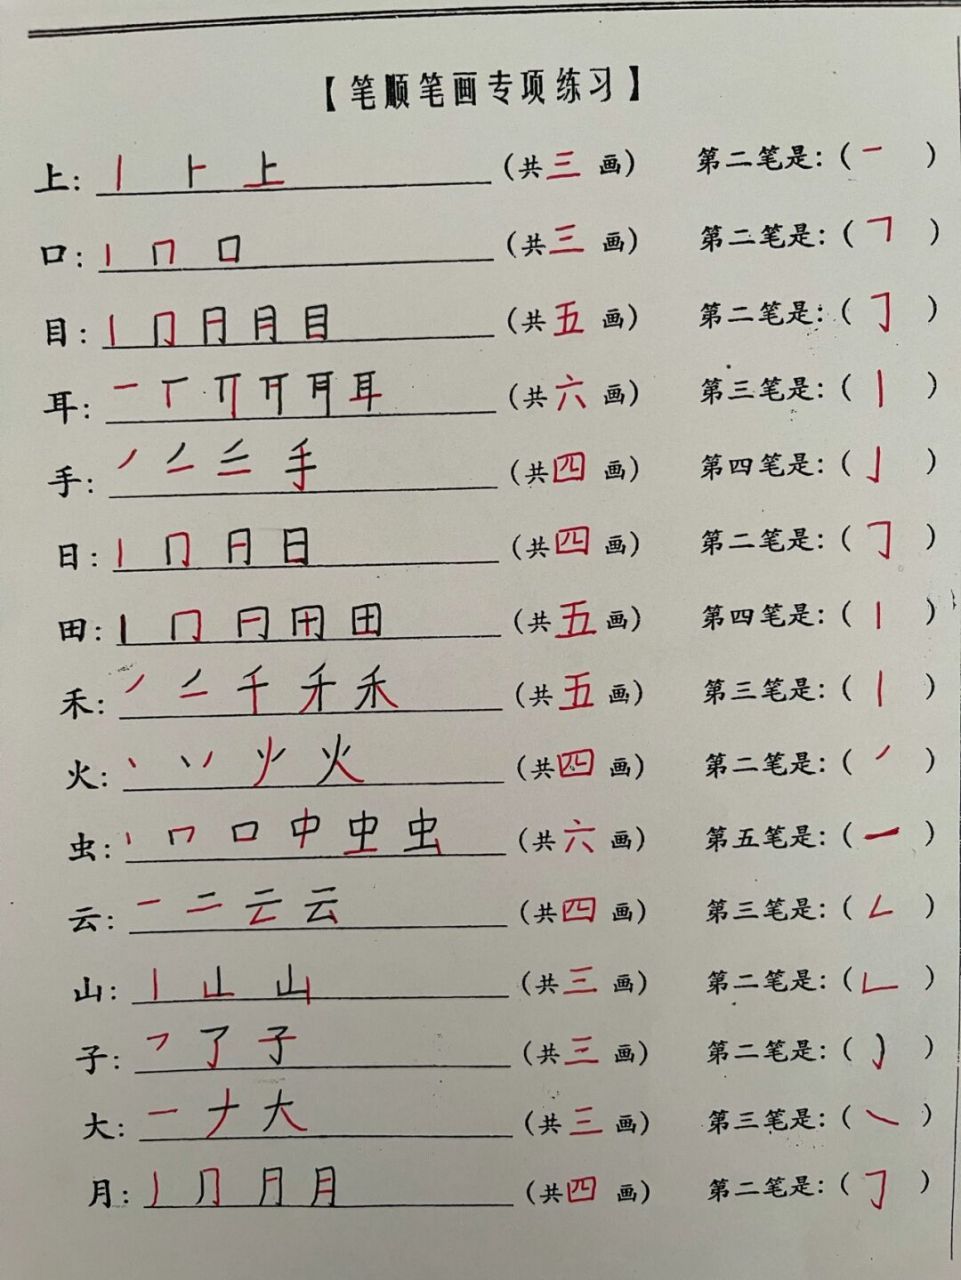 【笔顺笔画专项练习】
上: 丨 ⺊ 上 (共三画) 第二笔是:(一)
口: 丨 冂 口 (共三画) 第二笔是:(𠃍)
目: 丨 冂 月 目 (共五画) 第二笔是:(𠃌)
耳: 一 丅 耳 (共六画) 第三笔是:(丨)
手: 丿 手 (共四画) 第四笔是:(亅)
日: 丨 冂 日 (共四画) 第二笔是:(𠃌)
田: 丨 冂 田 (共五画) 第四笔是:(丨)
禾: 丿 千 禾 (共五画) 第三笔是:(丨)
火: 丶 丷 火 (共四画) 第二笔是:(丿)
虫: 丨 口 中 虫 (共六画) 第五笔是:(一)
云: 一 二 云 (共四画) 第三笔是:(𠃋)
山: 丨 山 (共三画) 第二笔是:(𠃊)
子: 乛 了 子 (共三画) 第二笔是:(亅)
大: 一 ナ 大 (共三画) 第三笔是:(㇏)
月: 丿 冂 月 (共四画) 第二笔是:(𠃌)